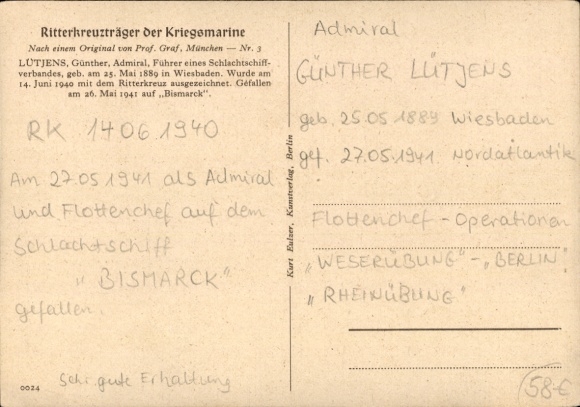 Ritterkreuzträger der Kriegsmarine
Nach einem Original von Prof. Graf, München — Nr. 3
LÜTJENS, Günther, Admiral, Führer eines Schlachtschiff-
verbandes, geb. am 25. Mai 1889 in Wiesbaden. Wurde am
14. Juni 1940 mit dem Ritterkreuz ausgezeichnet. Gefallen
am 26. Mai 1941 auf „Bismarck".
RK 14.06.1940
Am 27.05.1941 als Admiral
und Flottenchef auf dem
Schlachtschiff
„BISMARCK"
gefallen.
Sehr gute Erhaltung
0024
Kurt Eulzer, Kunstverlag, Berlin
Admiral
GÜNTHER LÜTJENS
geb. 25.05.1889 Wiesbaden
gef. 27.05.1941 Nordatlantik
Flottenchef - Operationen
„WESERÜBUNG" - „BERLIN"
„RHEINÜBUNG"
58-€